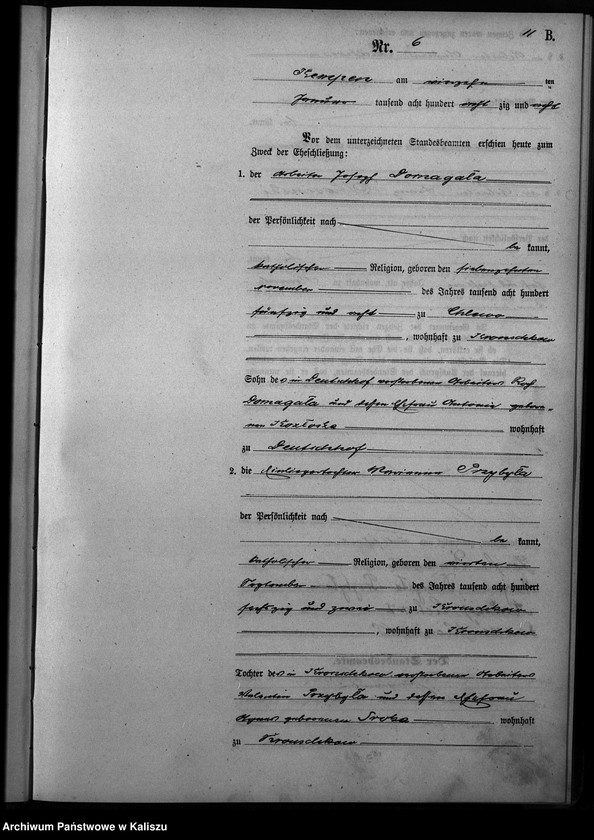 11 B.
Nr. 6
Kempen am vierzehn ten
Januar tausend acht hundert acht zig und acht
Vor dem unterzeichneten Standesbeamten erschien heute zum
Zweck der Eheschließung:
1. der Arbeiter Joseph Domagała
der Persönlichkeit nach
be kannt,
katholischer Religion, geboren den siebenzehnten
November des Jahres tausend acht hundert
fünfzig und acht zu Chlewo
, wohnhaft zu
Sohn des in Deutschhof verstorbenen Arbeiters Roch
Domagała und dessen Ehefrau Antonie gebore-
nen Kozłoska wohnhaft
zu Deutschhof
2. die Einliegertochter Marianna Przybyła
der Persönlichkeit nach
be kannt,
katholischer Religion, geboren den vierten
September des Jahres tausend acht hundert
sechszig und zwei zu
, wohnhaft zu
Tochter des in verstorbenen Arbeiters
Valentin Przybyła und dessen Ehefrau
Agnes geborenen wohnhaft
zu
Archiwum Państwowe w Kaliszu